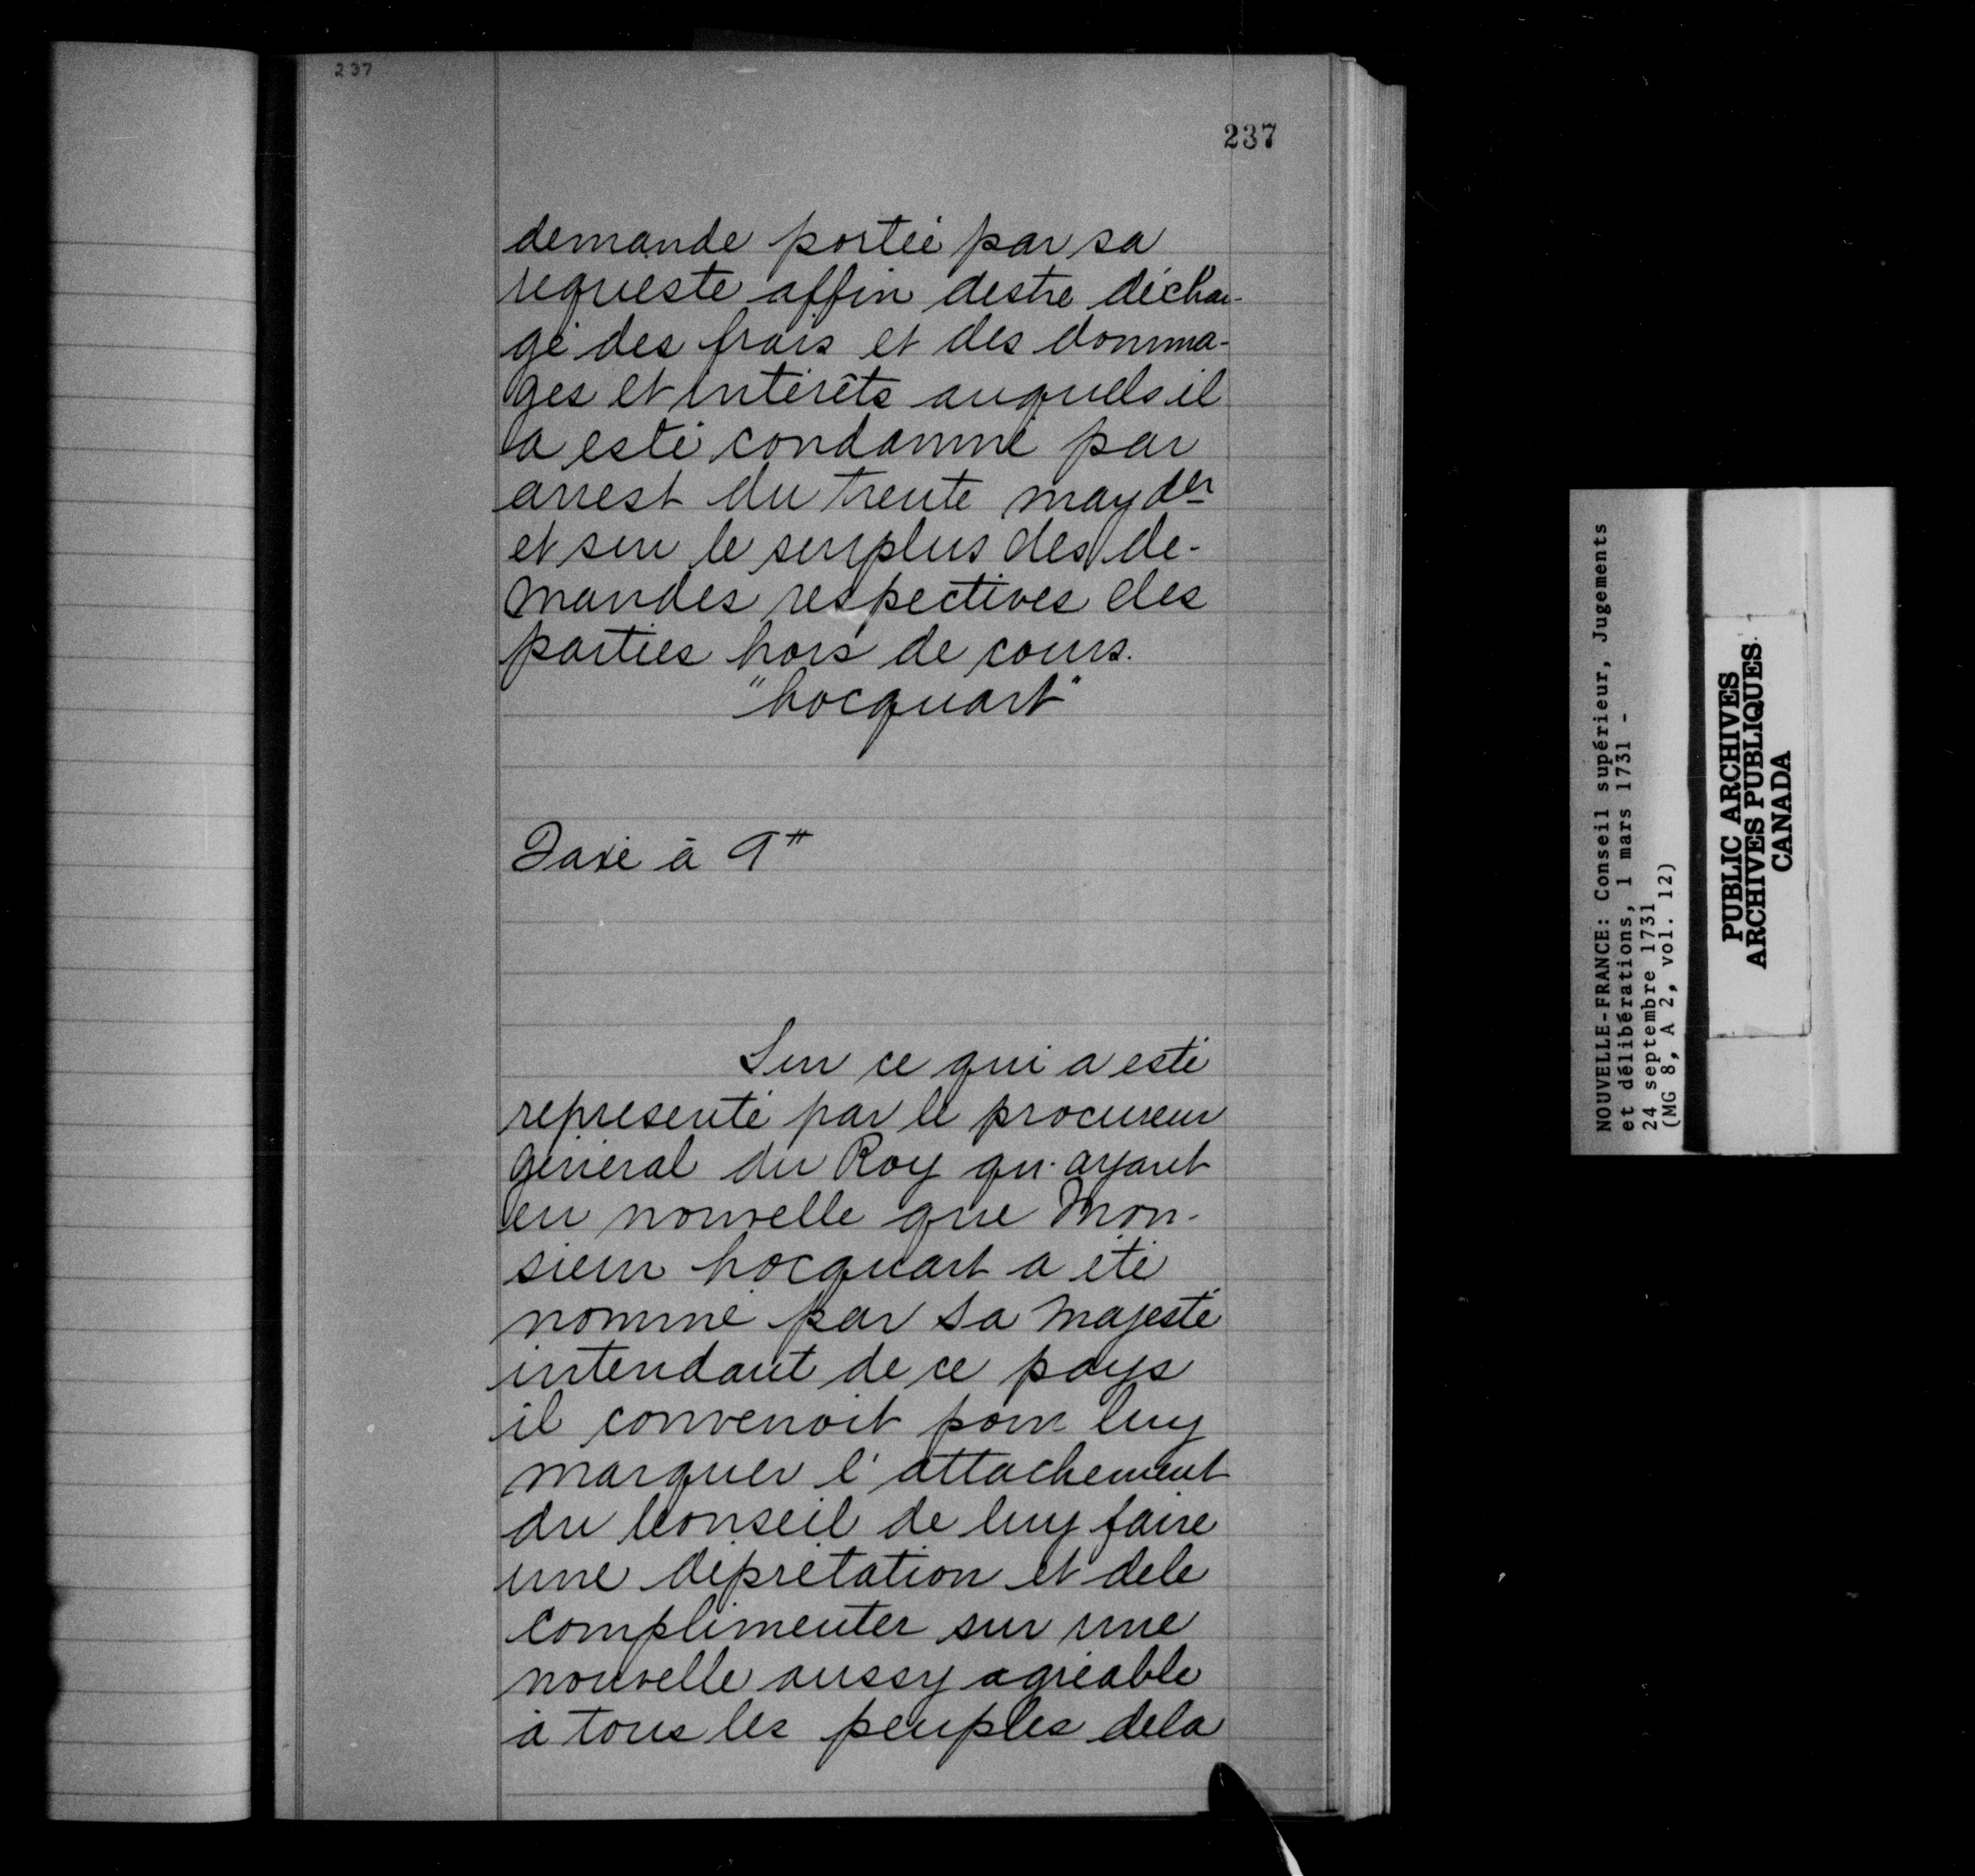 237
237
demande portée par sa
requeste affin destre déchar-
gé des frais et des domma-
ges et intérêts auquels il
a esté condamné par
arrest du trente may der
et sur le surplus des de-
mandes respectives des
parties hors de cours.
"hocquart"
Taxé à 9#
Sur ce qui a esté
representé par le procureur
général du Roy qu'ayant
eu nouvelle que Mon-
sieur hocquart a été
nommé par sa Majesté
intendant de ce pays
il convenoit pour luy
marquer l'attachement
du Conseil de luy faire
une députation et dele
complimenter sur une
nouvelle aussy agréable
à tous les peuples dela
NOUVELLE-FRANCE: Conseil supérieur, Jugements
et délibérations, 1 mars 1731 -
24 septembre 1731
(MG 8, A 2, vol. 12)
PUBLIC ARCHIVES
ARCHIVES PUBLIQUES
CANADA